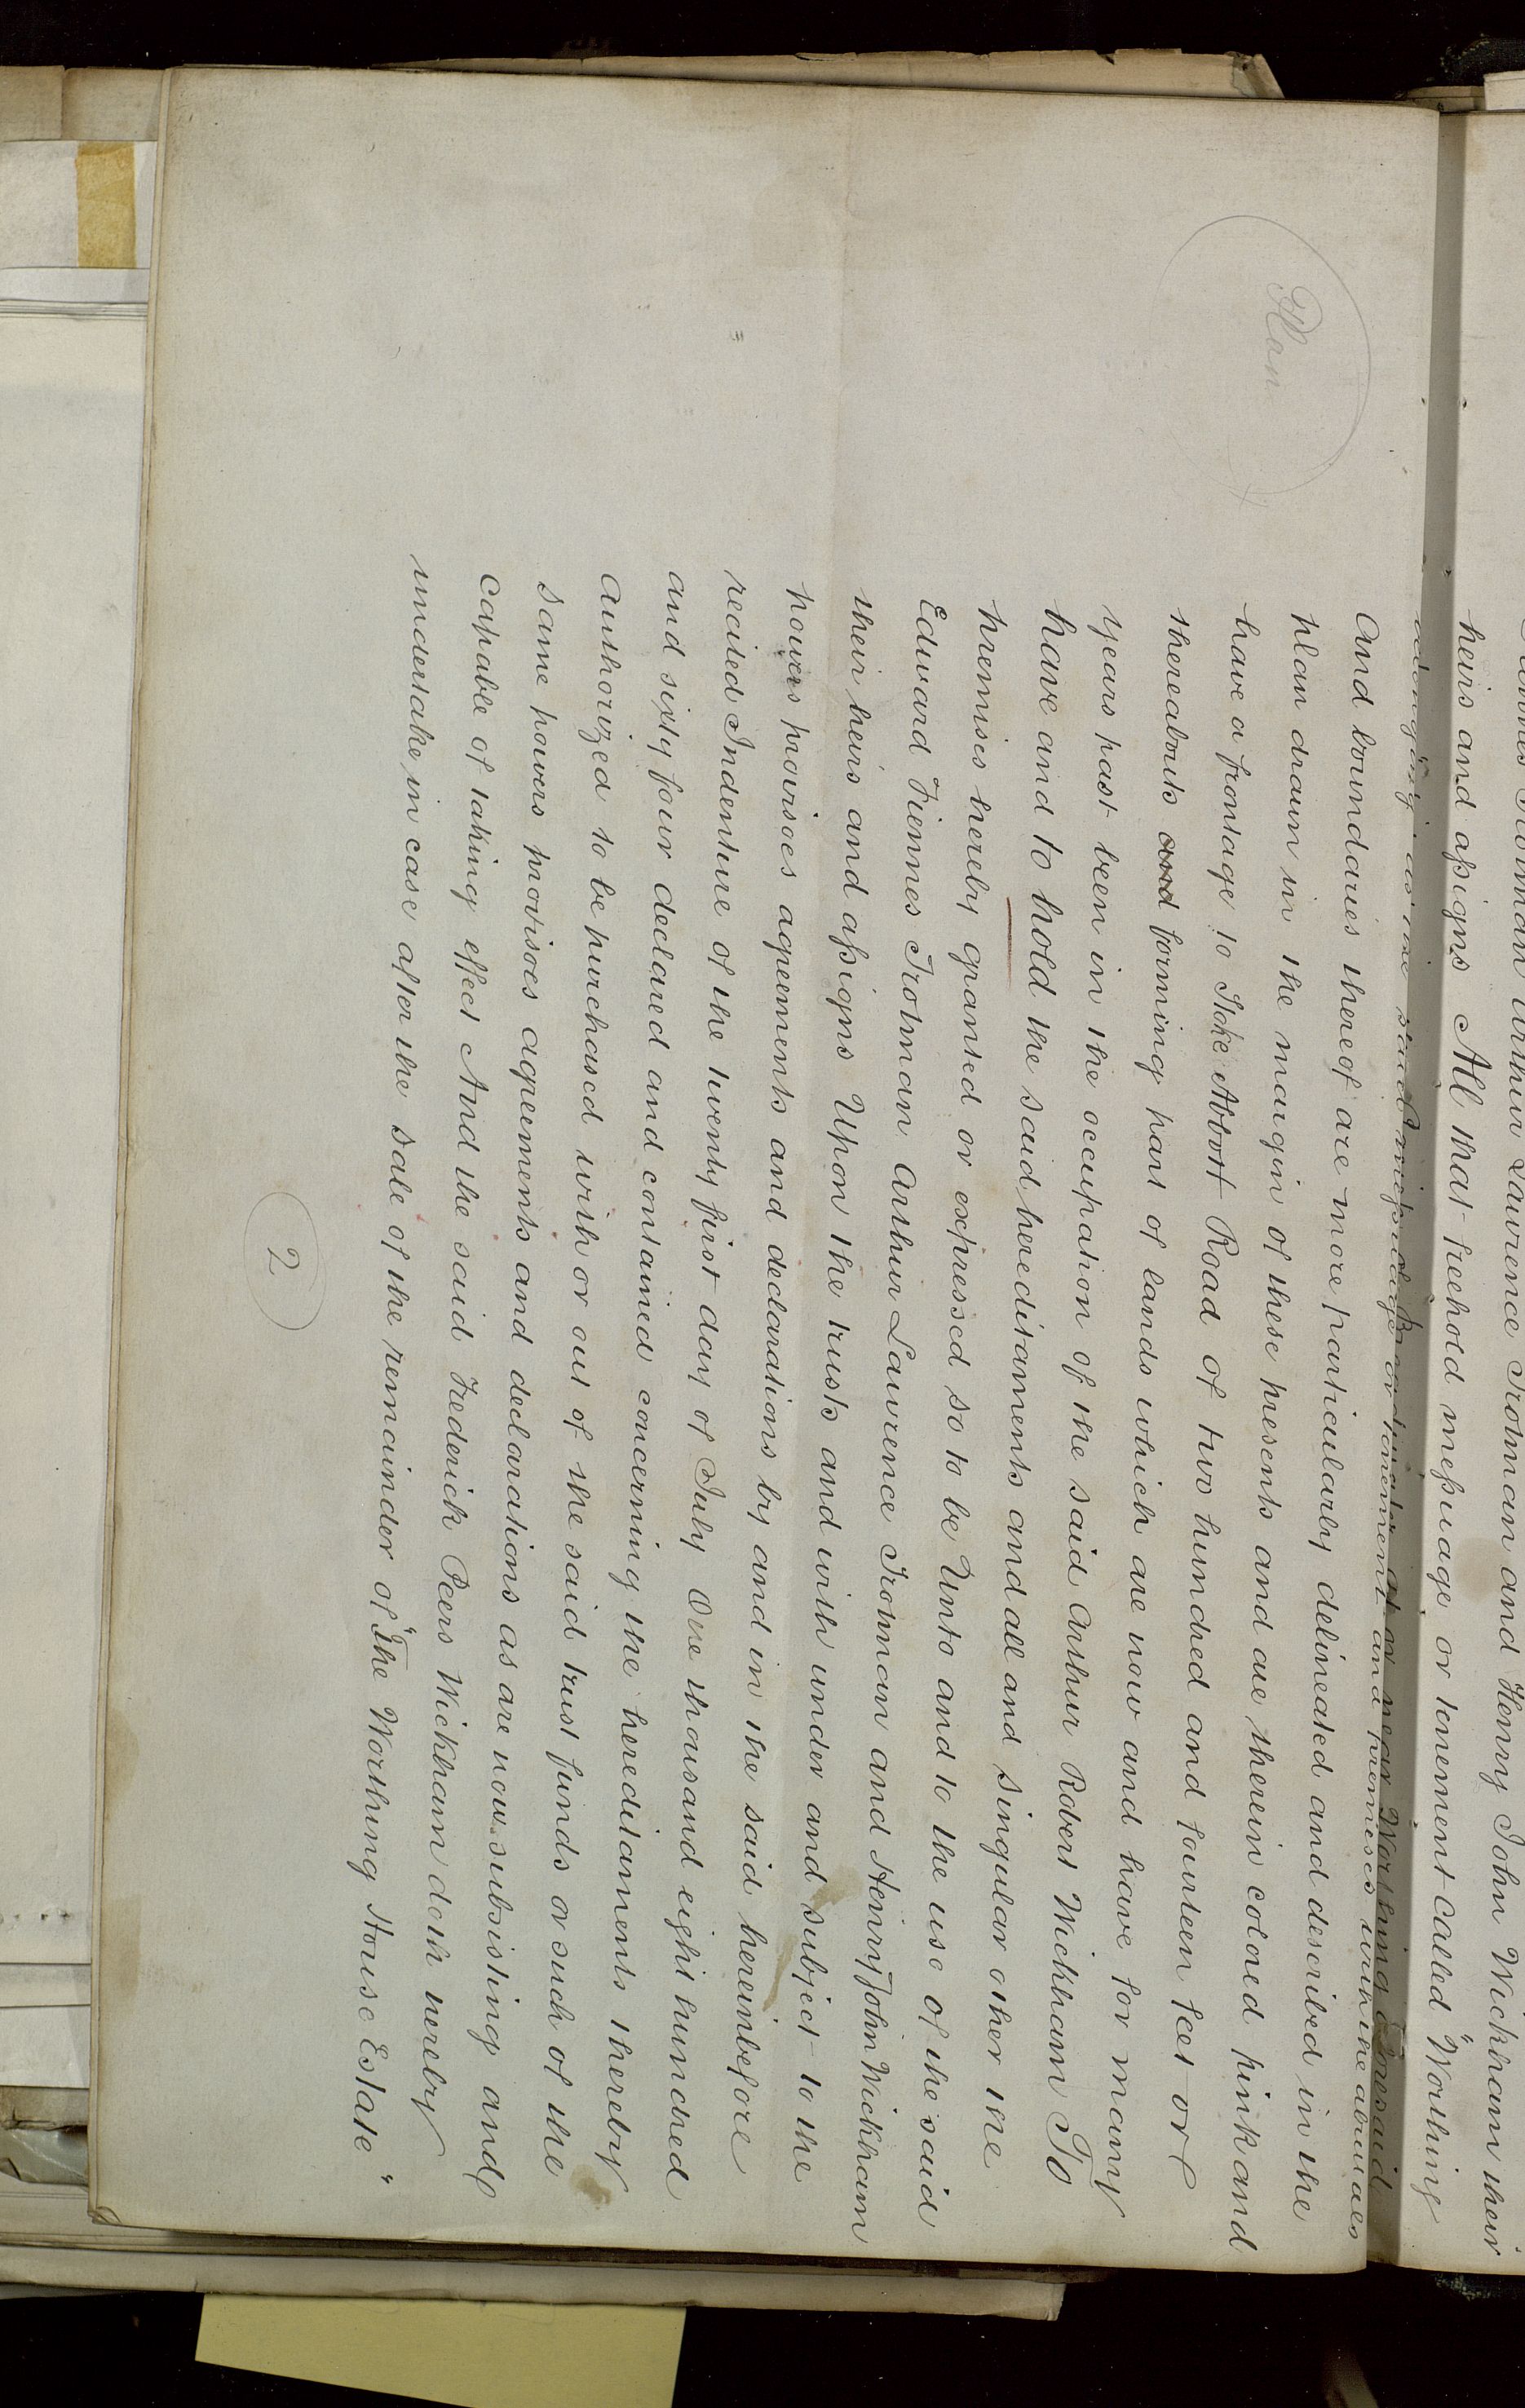 Fiennes Trotman Arthur Lawrence Trotman and Henry John Wickham their
heirs and assigns All that freehold messuage or tenement called "Worthing
at or near Worthing aforesaid
belonging as the said messuage or tenement and premises with the abuttals
And boundaries thereof are more particularly delineated and described in the
plan drawn in the margin of these presents and are therein colored pink and
have a frontage to Stoke Abbott Road of two hundred and fourteen feet or
thereabouts and forming part of lands which are now and have for many
years past been in the occupation of the said Arthur Robert Wickham To
have and to hold the said hereditaments and all and singular other the
premises hereby granted or expressed so to be Unto and to the use of the said
Edward Fiennes Trotman Arthur Lawrence Trotman and Henry John Wickham
their heirs and assigns Upon the trusts and with under and subject to the
powers provisoes agreements and declarations by and in the said hereinbefore
recited Indenture of the twenty first day of July One thousand eight hundred
and sixty four declared and contained concerning the hereditaments thereby
authorized to be purchased with or out of the said trust funds or such of the
same powers provisoes agreements and declarations as are now subsisting and
capable of taking effect And the said Frederick Peers Wickham doth hereby
undertake in case after the sale of the remainder of "The Worthing House Estate"
Plan
2